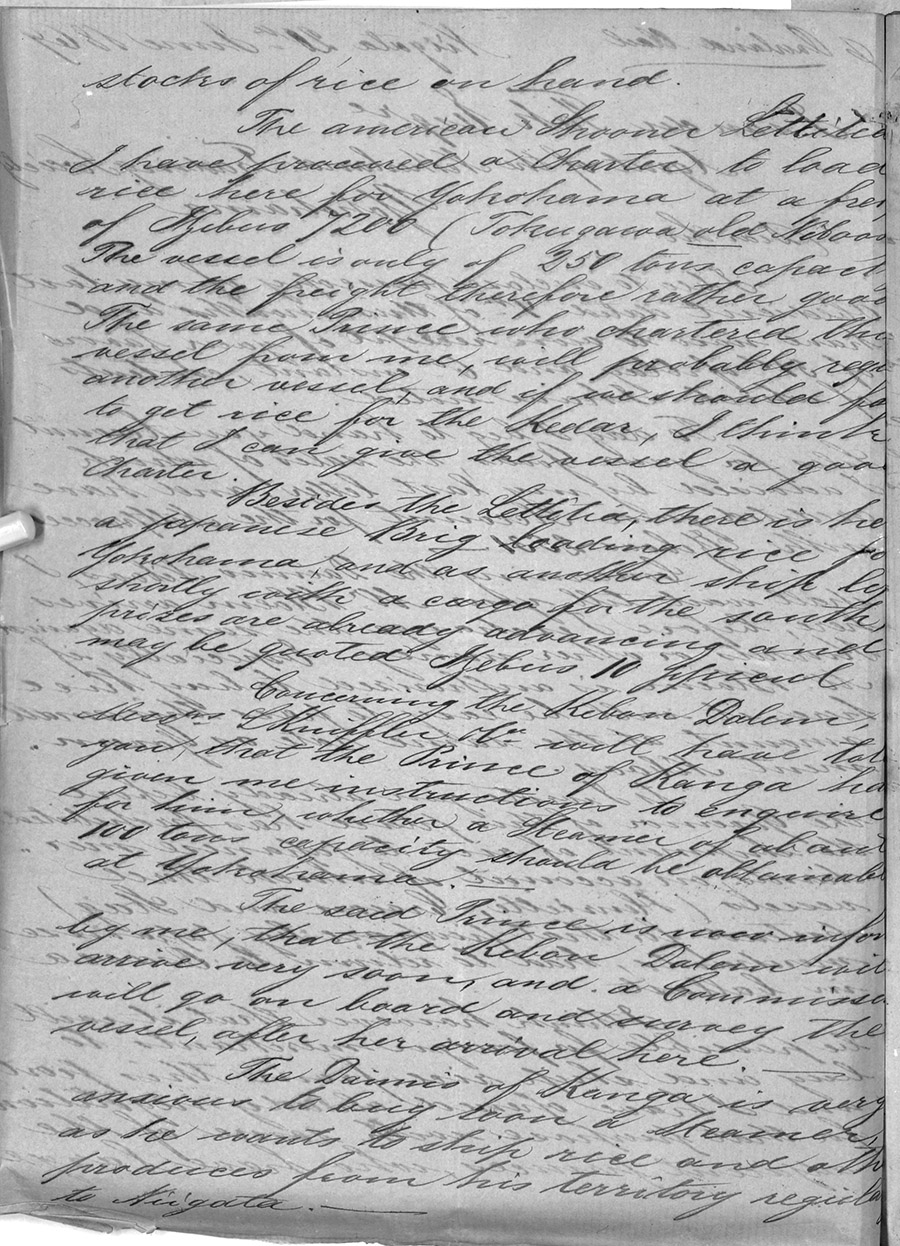 stocks of rice on hand.
The american Shooner Lettitia
I have procured a Charter to load
rice here for Yokohama at a frei
of Itzebus 7200 (Tokugawa old Niboos
The vessel is only of 250 tons capaci
and the freight therefore rather good
The same Prince who chartered the
vessel from me, will probably requ
another vessel, and if we should fa
to get rice for the Kedar, I think
that I can give the vessel a good
Charter.
Besides the Lettitia, there is he
a japanese Brig loading rice fo
Yokohama, and as another ship le
shortly with a cargo for the south
prizes are already advancing and
may be quoted Itzebus 10 p picul
Concerning the Kebon Dalem,
Messrs L Kniffler & Co will have tol
you, that the Prince of Kanga ha
given me instructions to enquire
for him, whether a Steamer of about
100 tons capacity should be obtainabl
at Yokohama. —
The said Prince is now infor
by me, that the Kebon Dalem wil
arrive very soon, and a Commissa
will go on board and survey the
vessel, after her arrival here —
The Daimio of Kanga is very
anxious to buy soon a Steamer,
as he wants to ship rice and oth
produces from his territory regula
to Niigata. —